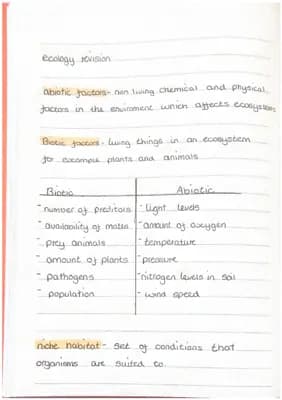 ecology revision
abiotic factors- non living chemical and physical
factors in the enviroment which affects ecosystems
Biotic factors- living things in an ecosystem
for example plants and animals
Biotic | Abiotic
- number of preditors | - light levels
- availability of mates | - amount of oxygen
- prey animals | - temperature
- amount of plants | - pressure
- pathogens | - nitrogen levels in soil
- population | - wind speed
niche habitat- set of conditions that
organisms are suited to.